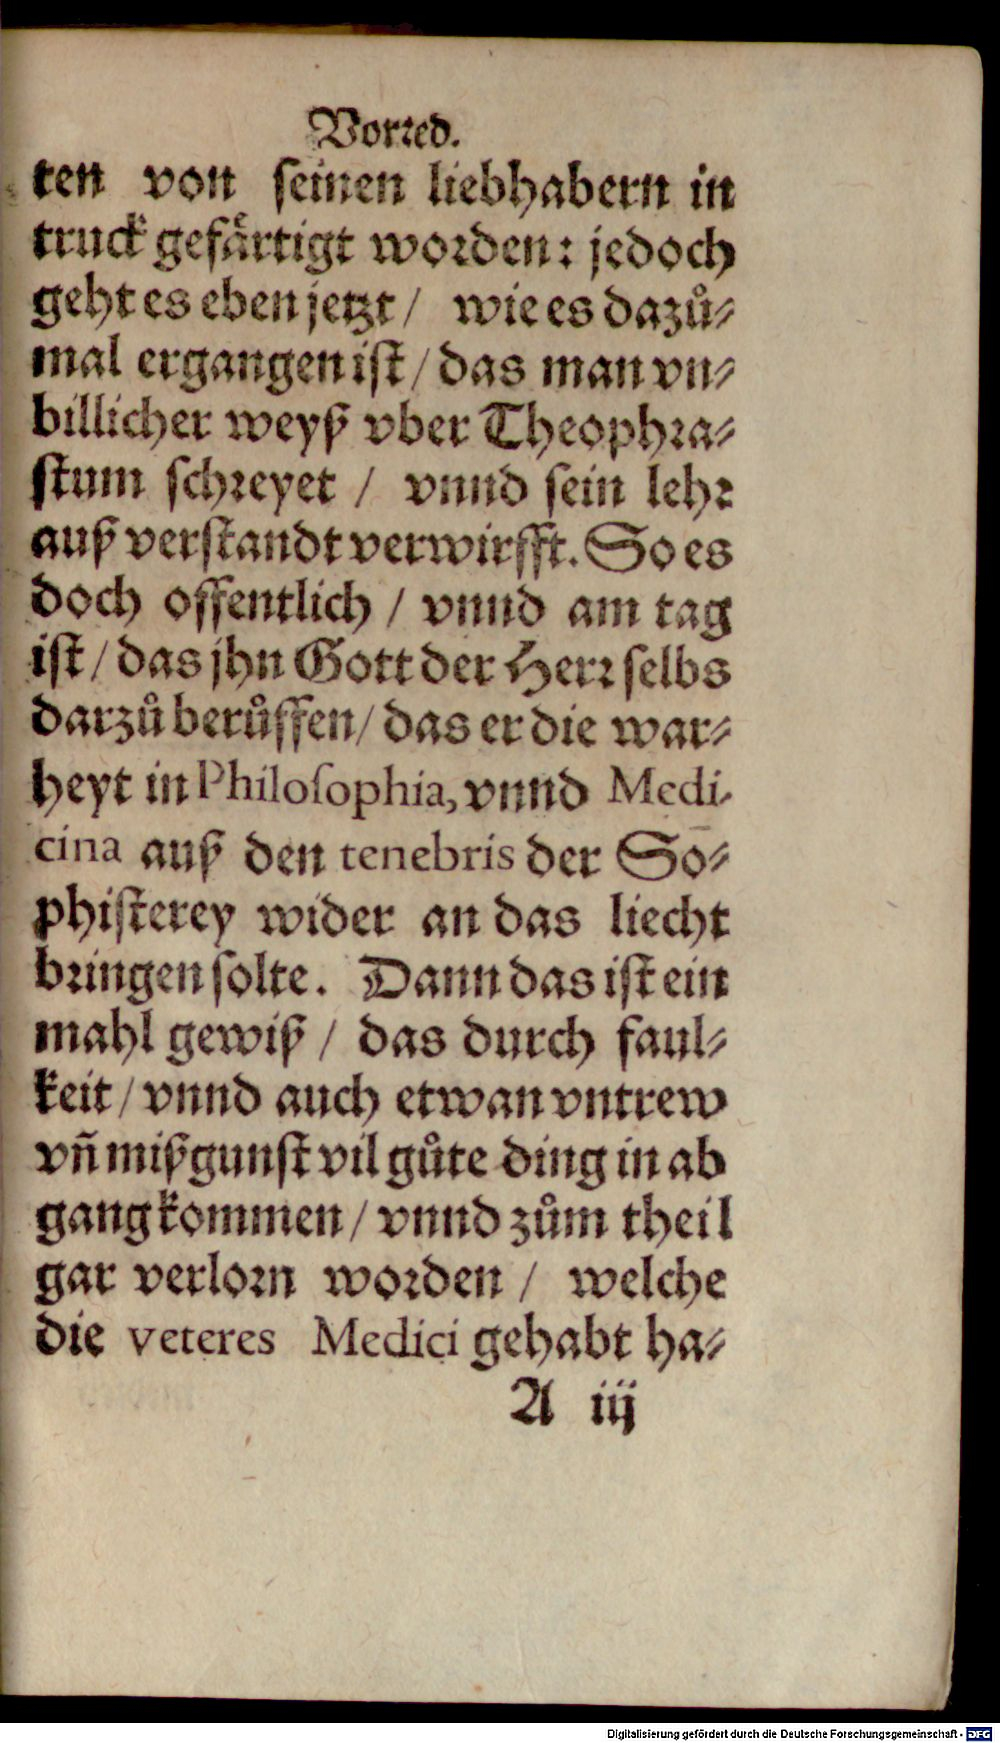 Vorred.
ten von seinen liebhabern in
truck gefärtigt worden: jedoch
geht es eben jetzt / wie es dazů⸗
mal ergangen ist / das man vn⸗
billicher weyß vber Theophra⸗
stum schreyet / vnnd sein lehr
auß verstandt verwirfft. So es
doch offentlich / vnnd am tag
ist / das jhn Gott der Herr selbs
darzů berůffen / das er die war⸗
heyt in Philosophia, vnnd Medi-
cina auß den tenebris der So⸗
phisterey wider an das liecht
bringen solte. Dann das ist ein
mahl gewiß / das durch faul⸗
keit / vnnd auch etwan vntrew
vñ mißgunst vil gůte ding in ab
gang kommen / vnnd zům theil
gar verlorn worden / welche
die veteres Medici gehabt ha⸗
A iij
Digitalisierung gefördert durch die Deutsche Forschungsgemeinschaft - DFG